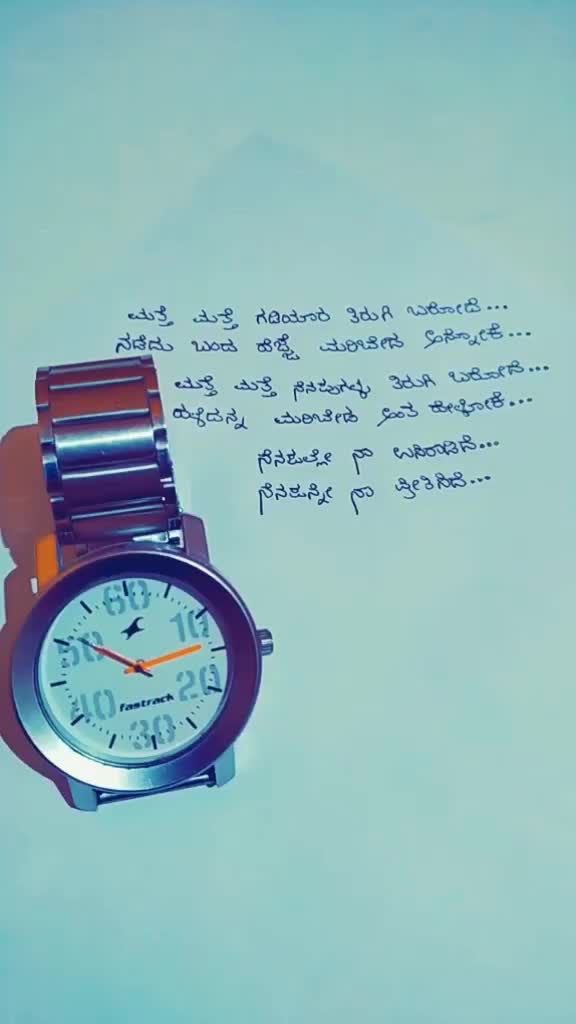 ಮತ್ತೆ ಮತ್ತೆ ಗಡಿಯಾರ ತಿರುಗಿ ಬರೋದೆ...
ನಡೆದು ಬಂದ ಹೆಜ್ಜೆ ಮರಿಬೇಡ ಅನ್ನೋಕೆ...
ಮತ್ತೆ ಮತ್ತೆ ನೆನಪುಗಳು ತಿರುಗಿ ಬರೋದೆ...
ಹಳೆದನ್ನ ಮರಿಬೇಡ ಅಂತ ಹೇಳೋಕೆ...
ನೆನಪಲ್ಲೇ ನಾ ಉಸಿರಾಡಿದೆ...
ನೆನಪನ್ನೇ ನಾ ಪ್ರೀತಿಸಿದೆ...
60
10
50
20
40
fastrack
30